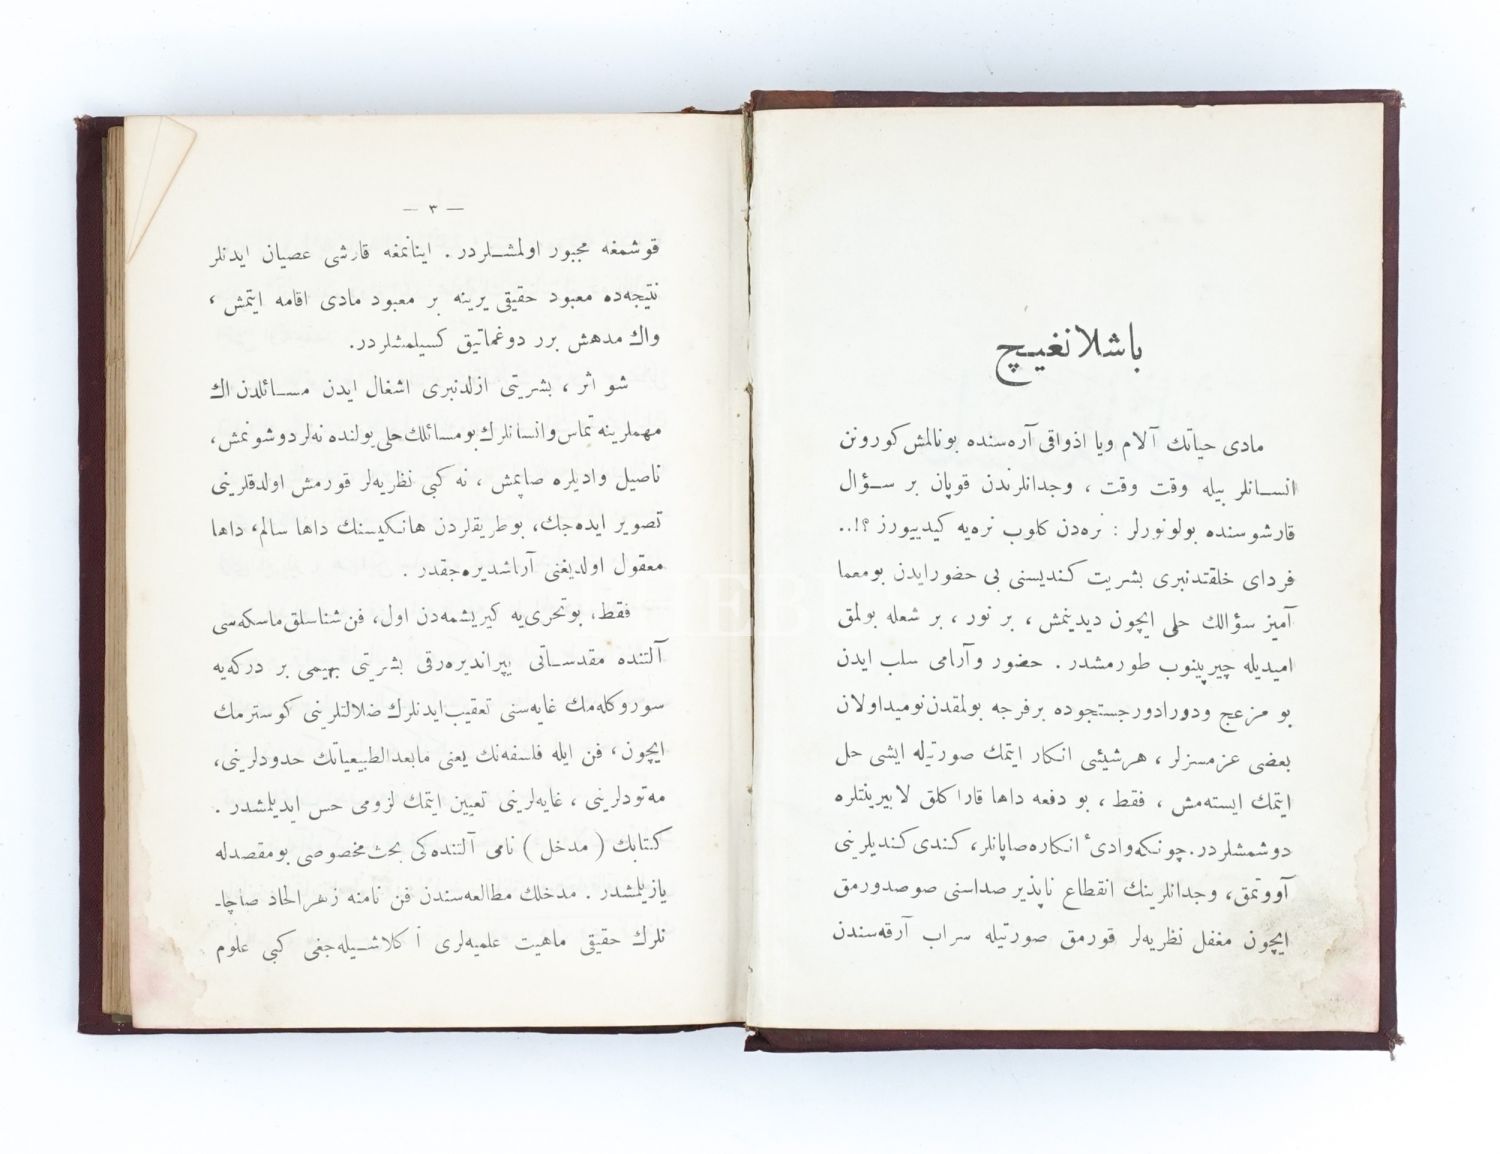 باشلانغيچ
مادى حياتك آلام ويا اذواقى آره‌سنده بونالمش كورونن
انسـانلر بيله وقت وقت ، وجدانلرندن قوپان بر سـؤال
قارشوسنده بولونورلر : نره‌دن كلوب نره‌يه كيدييورز ؟!..
فرداى خلقتدنبرى بشريت كنديسنى بى حضور ايدن بو معما
آميز سؤالك حلى ايچون ديدينمش ، بر نور ، بر شعله بولمق
اميديله چيرپينوب طورمشدر . حضور و آرامى سلب ايدن
بو مزعج ودورادور جستجوده بر فرجه بولمقدن نوميد اولان
بعضى عزمسزلر ، هرشيئى انكار ايتمك صورتيله ايشى حل
ايتمك ايسته‌مش ، فقط ، بو دفعه داها قارا كلق لابيرينتلره
دوشمشلردر. چونكه وادئ انكاره صاپانلر، كندى كنديلرينى
آووتمق، وجدانلرينك انقطاع ناپذير صداسنى صوصدورمق
ايچون مغفل نظريه‌لر قورمق صورتيله سراب آرقه‌سندن
— ٣ —
قوشمغه مجبور اولمشـلردر . اينانمغه قارشى عصيان ايدنلر
نتيجه‌ده معبود حقيقى يرينه بر معبود مادى اقامه ايتمش ،
واك مدهش برر دوغماتيق كسيلمشلردر.
شو اثر ، بشريتى ازلدنبرى اشغال ايدن مسـائلدن اك
مهملرينه تماس وانسانلرك بو مسائلك حلى يولنده نه‌لر دوشونمش،
ناصيل واديلره صاپمش ، نه كبى نظريه‌لر قورمش اولدقلرينى
تصوير ايده‌جك، بو طريقلردن هانكيسنك داها سالم، داها
معقول اولديغنى آراشديره‌جقدر .
فقط، بو تحرى‌يه كيريشمه‌دن اول، فن شناسلق ماسكه‌سى
آلتنده مقدسـاتى ييپرانديره‌رق بشريتى بهيمى بر دركه‌يه
سوروكله‌مك غايه‌سنى تعقيب ايدنلرك ضلالتلرينى كوسترمك
ايچون، فن ايله فلسفه‌نك يعنى مابعدالطبيعياتك حدودلرينى،
مه‌تودلرينى ، غايه‌لرينى تعيين ايتمك لزومى حس ايديلمشدر .
كتابك ( مدخل ) نامى آلتنده‌كى بحث مخصوصى بو مقصدله
يازيلمشدر . مدخلك مطالعه‌سندن فن نامنه زهر الحاد صاچا‌ـ
نلرك حقيقى ماهيت علميه‌لرى آ كلاشـيله‌جغى كبى علوم